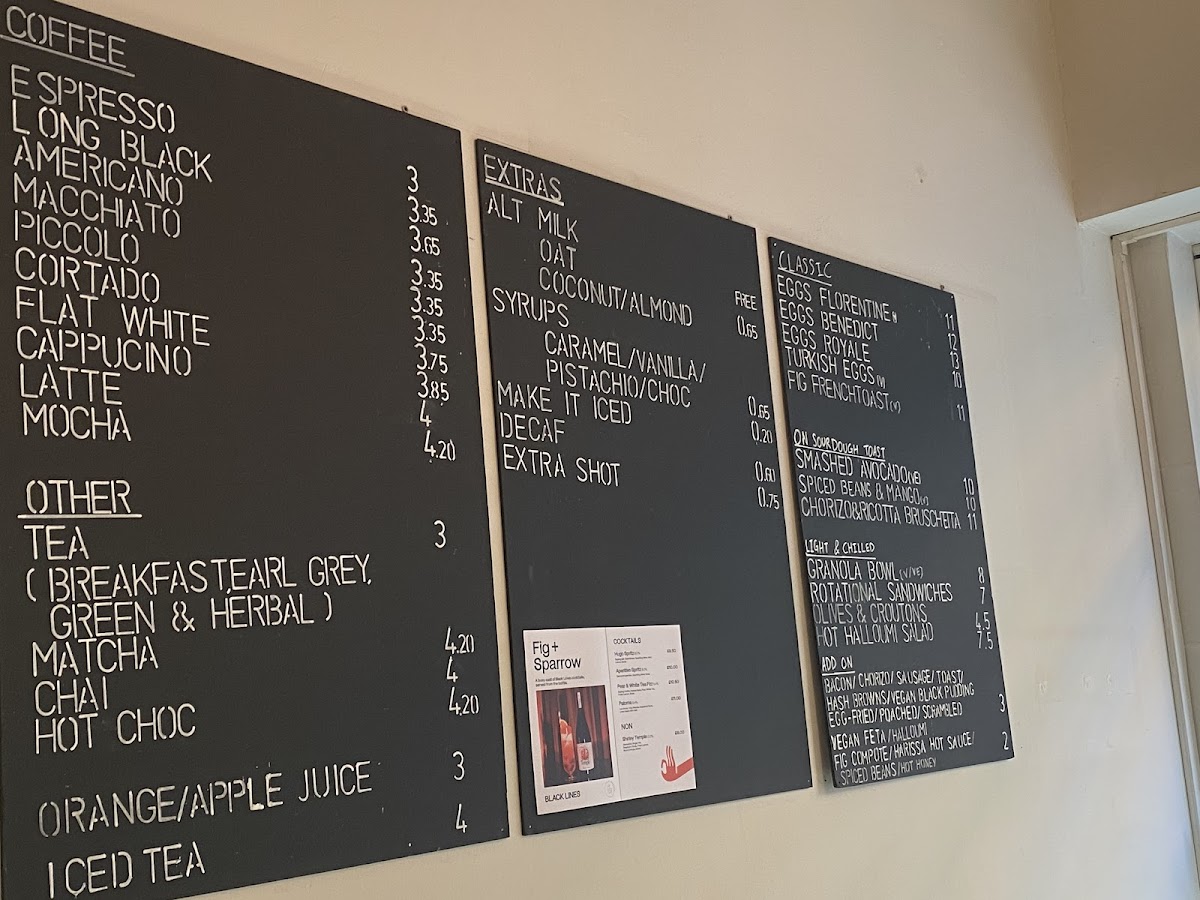 COFFEE
ESPRESSO 3
LONG BLACK 3.35
AMERICANO 3.65
MACCHIATO 3.35
PICCOLO 3.35
CORTADO 3.35
FLAT WHITE 3.75
CAPPUCINO 3.85
LATTE 4
MOCHA 4.20
OTHER
TEA 3
(BREAKFAST,EARL GREY,
GREEN & HERBAL)
MATCHA 4.20
CHAI 4
HOT CHOC 4.20
ORANGE/APPLE JUICE 3
ICED TEA 4
EXTRAS
ALT MILK
OAT FREE
COCONUT/ALMOND 0.65
SYRUPS
CARAMEL/VANILLA/
PISTACHIO/CHOC 0.65
MAKE IT ICED 0.20
DECAF 0.60
EXTRA SHOT 0.75
Fig+
Sparrow
BLACK LINES
COCKTAILS
Hugo Spritz
Aperitivo Spritz
Paloma
NON
Shirley Temple
CLASSIC
EGGS FLORENTINE 11
EGGS BENEDICT 12
EGGS ROYALE 13
TURKISH EGGS(V) 10
FIG FRENCHTOAST(V) 11
ON SOURDOUGH TOAST
SMASHED AVOCADO(VE) 10
SPICED BEANS & MANGO(V) 10
CHORIZO&RICOTTA BRUSCHETTA 11
LIGHT & CHILLED
GRANOLA BOWL(V/VE) 8
ROTATIONAL SANDWICHES 7
OLIVES & CROUTONS 4.5
HOT HALLOUMI SALAD 7.5
ADD ON
BACON/CHORIZO/SAUSAGE/TOAST/
HASH BROWNS/VEGAN BLACK PUDDING
EGG-FRIED/POACHED/SCRAMBLED 3
VEGAN FETA/HALLOUMI
FIG COMPOTE/HARISSA HOT SAUCE/ 2
SPICED BEANS/HOT HONEY